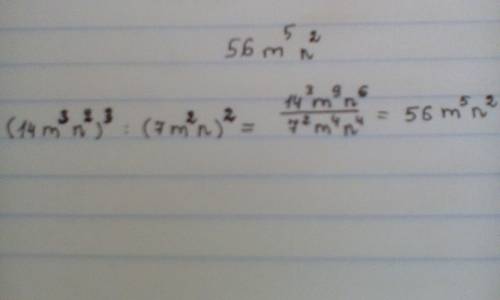 56 m⁵ n²
(14 m³ n²)³ : (7 m² n)² = 14³ m⁹ n⁶ / 7² m⁴ n⁴ = 56 m⁵ n²